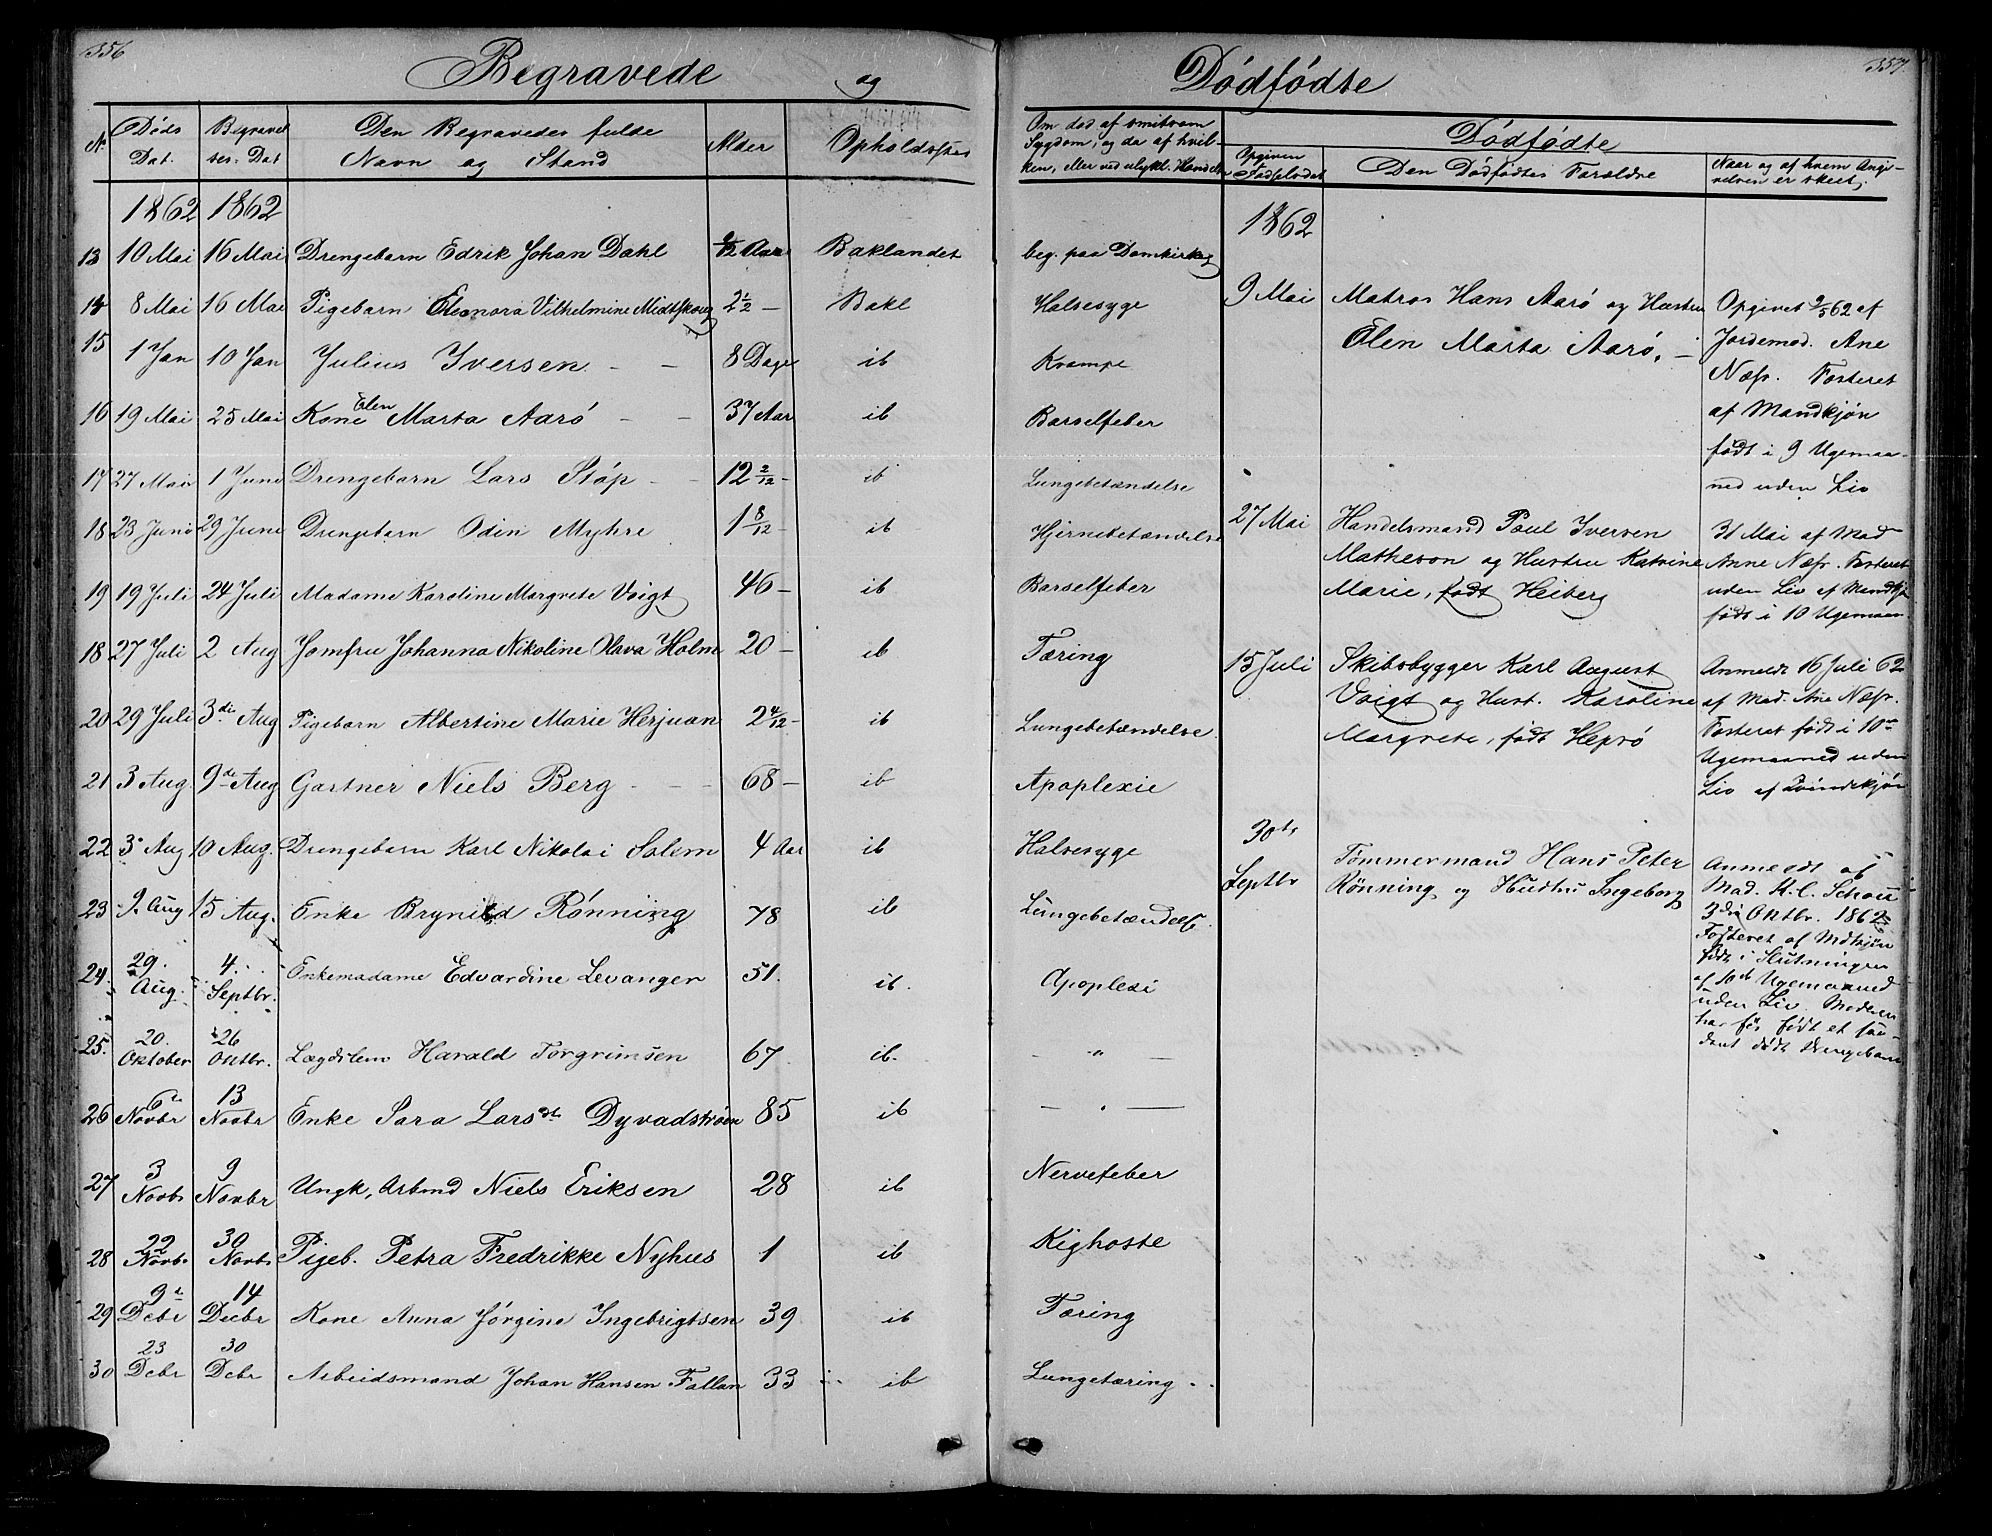 356
Begravede og
N. Døds Dat. Begravelses: Dat Den Begravedes fulde Navn og Stand Alder Opholdssted
1862 1862
13 10 Mai 16 Mai Drengebarn Edrik Johan Dahl /12 Aar Baklandet
14 8 Mai 16 Mai Pigebarn Eleonora Vilhelmine Midtskoug 2 1/2 — Bakl
15 1 Jan 10 Jan Julius Iversen - — 8 Dage ib
16 19 Mai 25 Mai Kone Elen Marta Aarö - - 37 Aar ib
17 27 Mai 1 Juni Drengebarn Lars Støp - - 12 2/12 - ib
18 23 Juni 29 Juni Drengebarn Odin Myhre 1 8/12 - ib
19 19 Juli 24 Juli Madame Karoline Margrete Voigt 46 - ib
18 27 Juli 2 Aug Jomfru Johanna Nikoline Olava Holm 20 - ib
20 29 Juli 3die Aug Pigebarn Albertine Marie Herjuan 2 4/12 - ib
21 3 Aug. 9de Aug Gartner Niels Berg - - - 68 - ib
22 3 Aug 10 Aug. Drengebarn Karl Nikolai Salem 4 Aar ib
23 9. Aug 15 Aug. Enke Brynild Rønning 78 ib
24. 29. Aug. 4. Septbr. Enkemadame Edvardine Levanger 51. ib.
25. 20. Oktober 26 Oktbr. Lægdslem Harald Torgrimsen 67 ib.
26 6te Novbr 13 Novbr Enke Sara Larsdt Dyvadstrøen 85 ib
27 3 Novbr 9 Novbr Ungk. Arbmd Niels Eriksen 28 ib
28 22 Novbr 30 Novbr Pigeb. Petra Fredrikke Nyhus 1 ib
29 9de Decbr 14 Decbr Kone Anna Jørgine Ingebrigtsen 39 ib
30 23 Debr 30 Debr Arbeidsmand Johan Hansen Fallan 33 ib
357
Dødfødte
Om død af smitsom Sygdom, og da af hvilken, eller ved ulykl. Hændelse
Dødfødte
Opgiven Fødselsdat Den Dødfødtes Forældre Naar og af hvem Angivelsen er skeet.
beg. paa Domkirkeg
Halsesyge
Krampe
Barselfeber
Lungebetændelse
Hjernebetændelse
Barselfeber
Tæring
Lungebetændelse.
Apoplexie
Halsesyge
Lungebetændelse.
Apoplexi
— " —
— " —
Nervefeber
Kighoste
Tæring
Lungetæring
1862
9 Mai Matros Hans Aarö og Hustru
Elen Marta Aarö, —
Opgivet 9/5 62 af
Jordemod. Ane
Næss. Fosteret
af Mandkjøn
født i 9 Ugemaa-
ned uden Liv
27 Mai Handelsmand Poul Iversen
Matheson og Hustru Katrine
Marie, født Heiberg
31 Mai af Mad
Anne Næss. Fosteret
uden Liv af Mandkj
født i 10 Ugemaan
15 Juli Skibsbygger Karl August
Voigt og Hust. Karoline
Margrete, født Heprö
Anmeldt 16 Juli 62
af Mad. Ane Næss.
Fosteret født i 10de
Ugemaaned uden
Liv af Qvindekjøn
30te
Septbr Tømmermand Hans Peter
Rønning og Hustru Ingeborg
Anmeldt af
Mad. K. C. Schou
3die Oktbr. 1862
Fosteret af Mdkjøn
født i Slutningen
af 10de Ugemaaned
uden Liv. Moderen
har før født et saa-
dant dødt Drengebarn